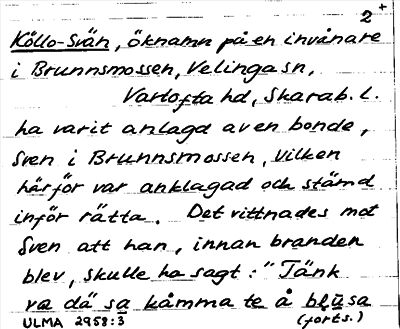 2+
Kållo-Svän, öknamn på en invånare
i Brunnsmossen, Velinga sn,
Vartofta hd, Skarab. l.
ha varit anlagd av en bonde,
Sven i Brunnsmossen, vilken
härför var anklagad och stämd
inför rätta. Det vittnades mot
Sven att han, innan branden
blev, skulle ha sagt: "Tänk
va dä sa kåmma te å blusa
ULMA 2958:3 (forts.)